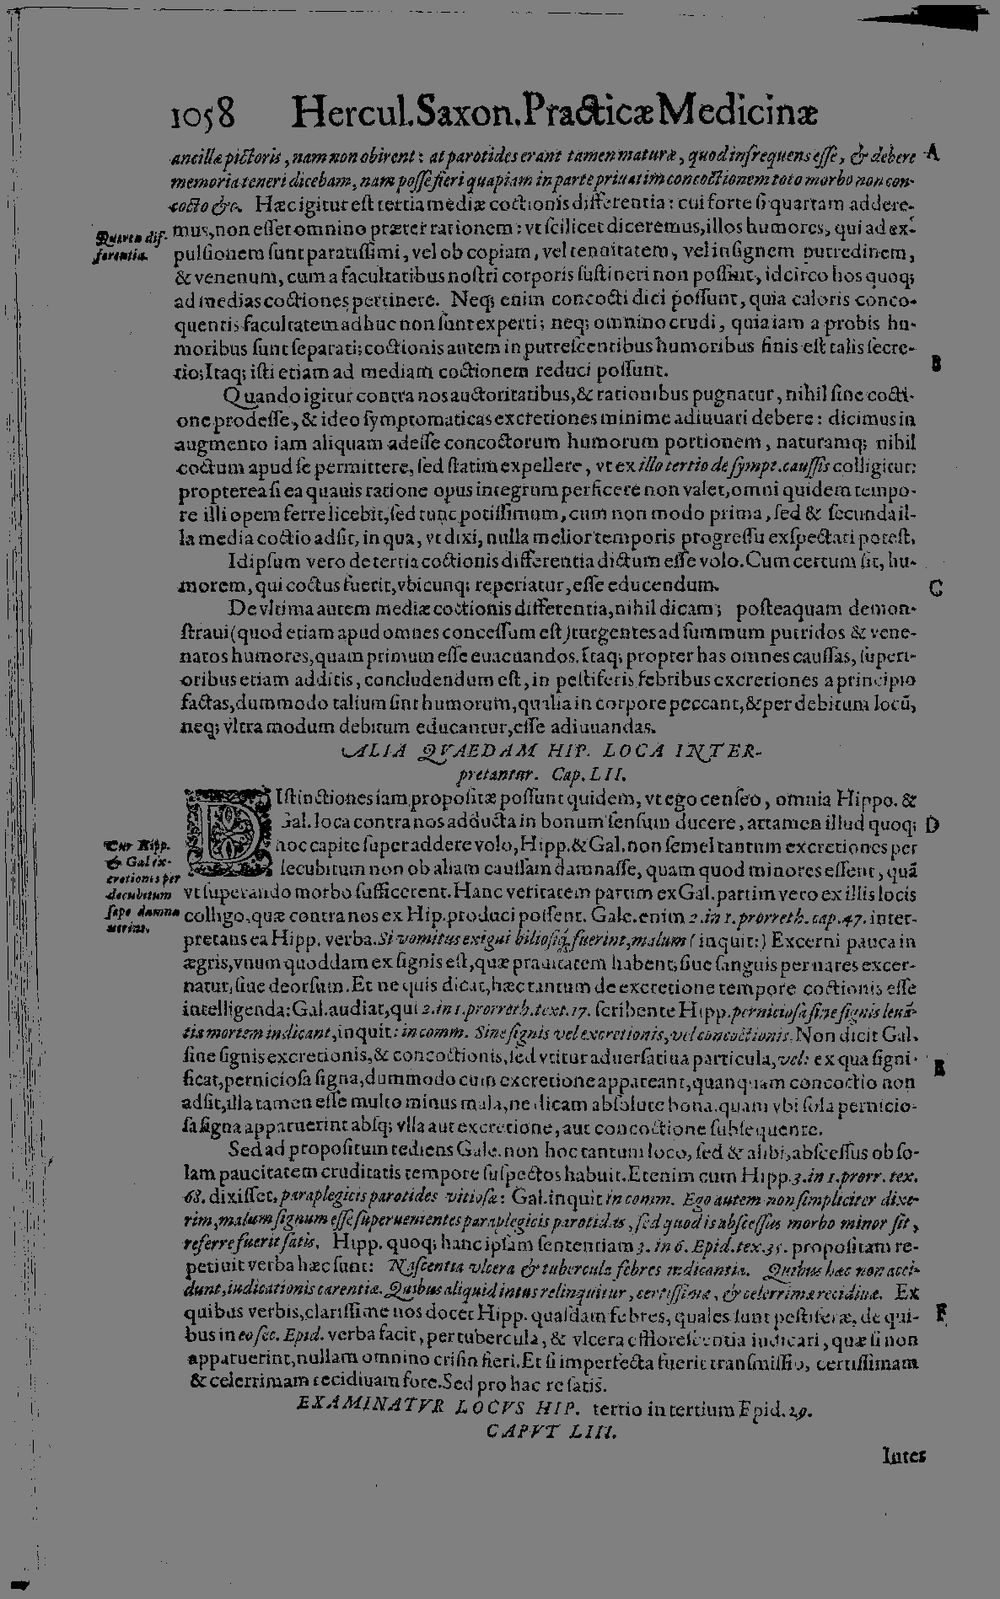 1058 Hercul. Saxon. Practicæ Medicinæ
ancillæ pictoris, nam non obirent: at parotides erant tamen maturæ, quod infrequens esse, & debere A
memoria teneri dicebam, nam posse fieri quapiam in parte priuatim concoctionem toto morbo non con-
cocto &c. Hæc igitur est tertia mediæ coctionis differentia: cui forte si quartam addere-
Quarta dif-
ferentia.
mus, non esset omnino præter rationem: vt scilicet diceremus, illos humores, qui ad ex-
pulsionem sunt paratissimi, vel ob copiam, vel tenuitatem, vel insignem putredinem,
& venenum, cum a facultatibus nostri corporis sustineri non possint, idcirco hos quoq;
ad medias coctiones pertinere. Neq; enim concocti dici possunt, quia caloris conco-
quentis facultatem adhuc non sunt experti; neq; omnino crudi, quia iam a probis hu-
moribus sunt separati; coctionis autem in putrescentibus humoribus finis est talis secre- B
tio; Itaq; isti etiam ad mediam coctionem reduci possunt.
Quando igitur contra nos auctoritatibus, & rationibus pugnatur, nihil sine cocti-
one prodesse, & ideo symptomaticas excretiones minime adiuuari debere: dicimus in
augmento iam aliquam adesse concoctorum humorum portionem, naturamq; nihil
coctum apud se permittere, sed statim expellere, vt ex illo tertio de sympt. caussis colligitur:
propterea si ea quauis ratione opus integrum perficere non valet, omni quidem tempo-
re illi opem ferre licebit, sed tunc potissimum, cum non modo prima, sed & secunda il-
la media coctio adsit, in qua, vt dixi, nulla melior temporis progressu exspectari potest.
Id ipsum vero de tertia coctionis differentia dictum esse volo. Cum certum sit, hu-
morem, qui coctus fuerit, vbicunq; reperiatur, esse educendum. C
De vltima autem mediæ coctionis differentia, nihil dicam; posteaquam demon-
straui (quod etiam apud omnes concessum est) turgentes ad summum putridos & vene-
natos humores, quam primum esse euacuandos. Itaq; propter has omnes caussas, superi-
oribus etiam additis, concludendum est, in pestiferis febribus excretiones a principio
factas, dummodo talium sint humorum, qualia in corpore peccant, & per debitum locū,
neq; vltra modum debitum educantur, esse adiuuandas.
ALIA QVAEDAM HIP. LOCA INTER-
pretantur. Cap. LII.
DIstinctiones iam propositæ possunt quidem, vt ego censeo, omnia Hippo. &
Gal. loca contra nos adducta in bonum sensum ducere, attamen illud quoq; D
Cur Hipp.
& Gal. ex-
cretiones per
decubitum
sæpe damna
uerint.
hoc capite superaddere volo, Hipp. & Gal. non semel tantum excretiones per
decubitum non ob aliam caussam damnasse, quam quod minores essent, quā
vt superando morbo sufficerent. Hanc veritatem partim ex Gal. partim vero ex illis locis
colligo, quæ contra nos ex Hip. produci possent. Gale. enim 2. in 1. prorreth. cap. 47. inter-
pretans ea Hipp. verba. Si vomitus exigui biliosiq; fuerint, malum (inquit:) Excerni pauca in
ægris, vnum quoddam ex signis est, quæ prauitatem habent, siue sanguis per nares excer-
natur, siue deorsum. Et ne quis dicat, hæc tantum de excretione tempore coctionis esse
intelligenda: Gal. audiat, qui 2. in 1. prorreth. text. 17. scribente Hipp. perniciosa sine signis leuā-
tis mortem indicant, inquit: in comm. Sine signis vel excretionis, vel concoctionis. Non dicit Gal.
sine signis excretionis, & concoctionis, sed vtitur aduersatiua particula, vel: ex qua signi- E
ficat, perniciosa signa, dummodo cum excretione appareant, quanquam concoctio non
adsit, illa tamen esse multo minus mala, ne dicam absolute bona, quam vbi sola pernicio-
sa signa apparuerint absq; vlla aut excretione, aut concoctione subsequente.
Sed ad propositum rediens Gale. non hoc tantum loco, sed & alibi, abscessus ob so-
lam paucitatem cruditatis tempore suspectos habuit. Etenim cum Hipp. 3. in 1. prorr. tex.
68. dixisset, paraplegicis parotides vitiosæ: Gal. inquit in comm. Ego autem non simpliciter dixe-
rim, malum signum esse superuenientes paraplegicis parotidas, sed quod is abscessus morbo minor sit,
referre fuerit satis. Hipp. quoq; hanc ipsam sententiam 3. in 6. Epid. tex. 35. propositam re-
petiuit verba hæc sunt: Nascentia vlcera & tubercula febres indicantia. Quibus hæc non acci-
dunt, indicationis carentia. Quibus aliquid intus relinquitur, certissimæ, & celerrimæ recidiuæ. Ex
quibus verbis, clarissime nos docet Hipp. quasdam febres, quales sunt pestiferæ, de qui- F
bus in eo sec. Epid. verba facit, per tubercula, & vlcera efflorescentia iudicari, quæ si non
apparuerint, nullam omnino crisin fieri. Et si imperfecta fuerit transmissio, certissimam
& celerrimam recidiuam fore. Sed pro hac re satis.
EXAMINATVR LOCVS HIP. tertio in tertium Epid. 29.
CAPVT LIII.
Inter